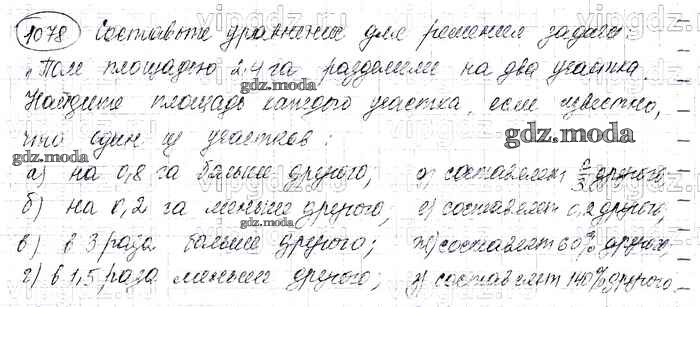 1078 Составьте уравнение для решения задачи:
„Поле площадью 2,4 га разделили на два участка.
Найдите площадь каждого участка, если известно,
что один из участков:
а) на 0,8 га больше другого;
б) на 0,2 га меньше другого;
в) в 3 раза больше другого;
г) в 1,5 раза меньше другого;
д) составляет другого
е) составляет 0,2 другого;
ж) составляет 60% другого;
з) составляет 140% другого.
gdz.moda
gdz.moda
gdz.moda
gdz.moda
vipgdz.ru